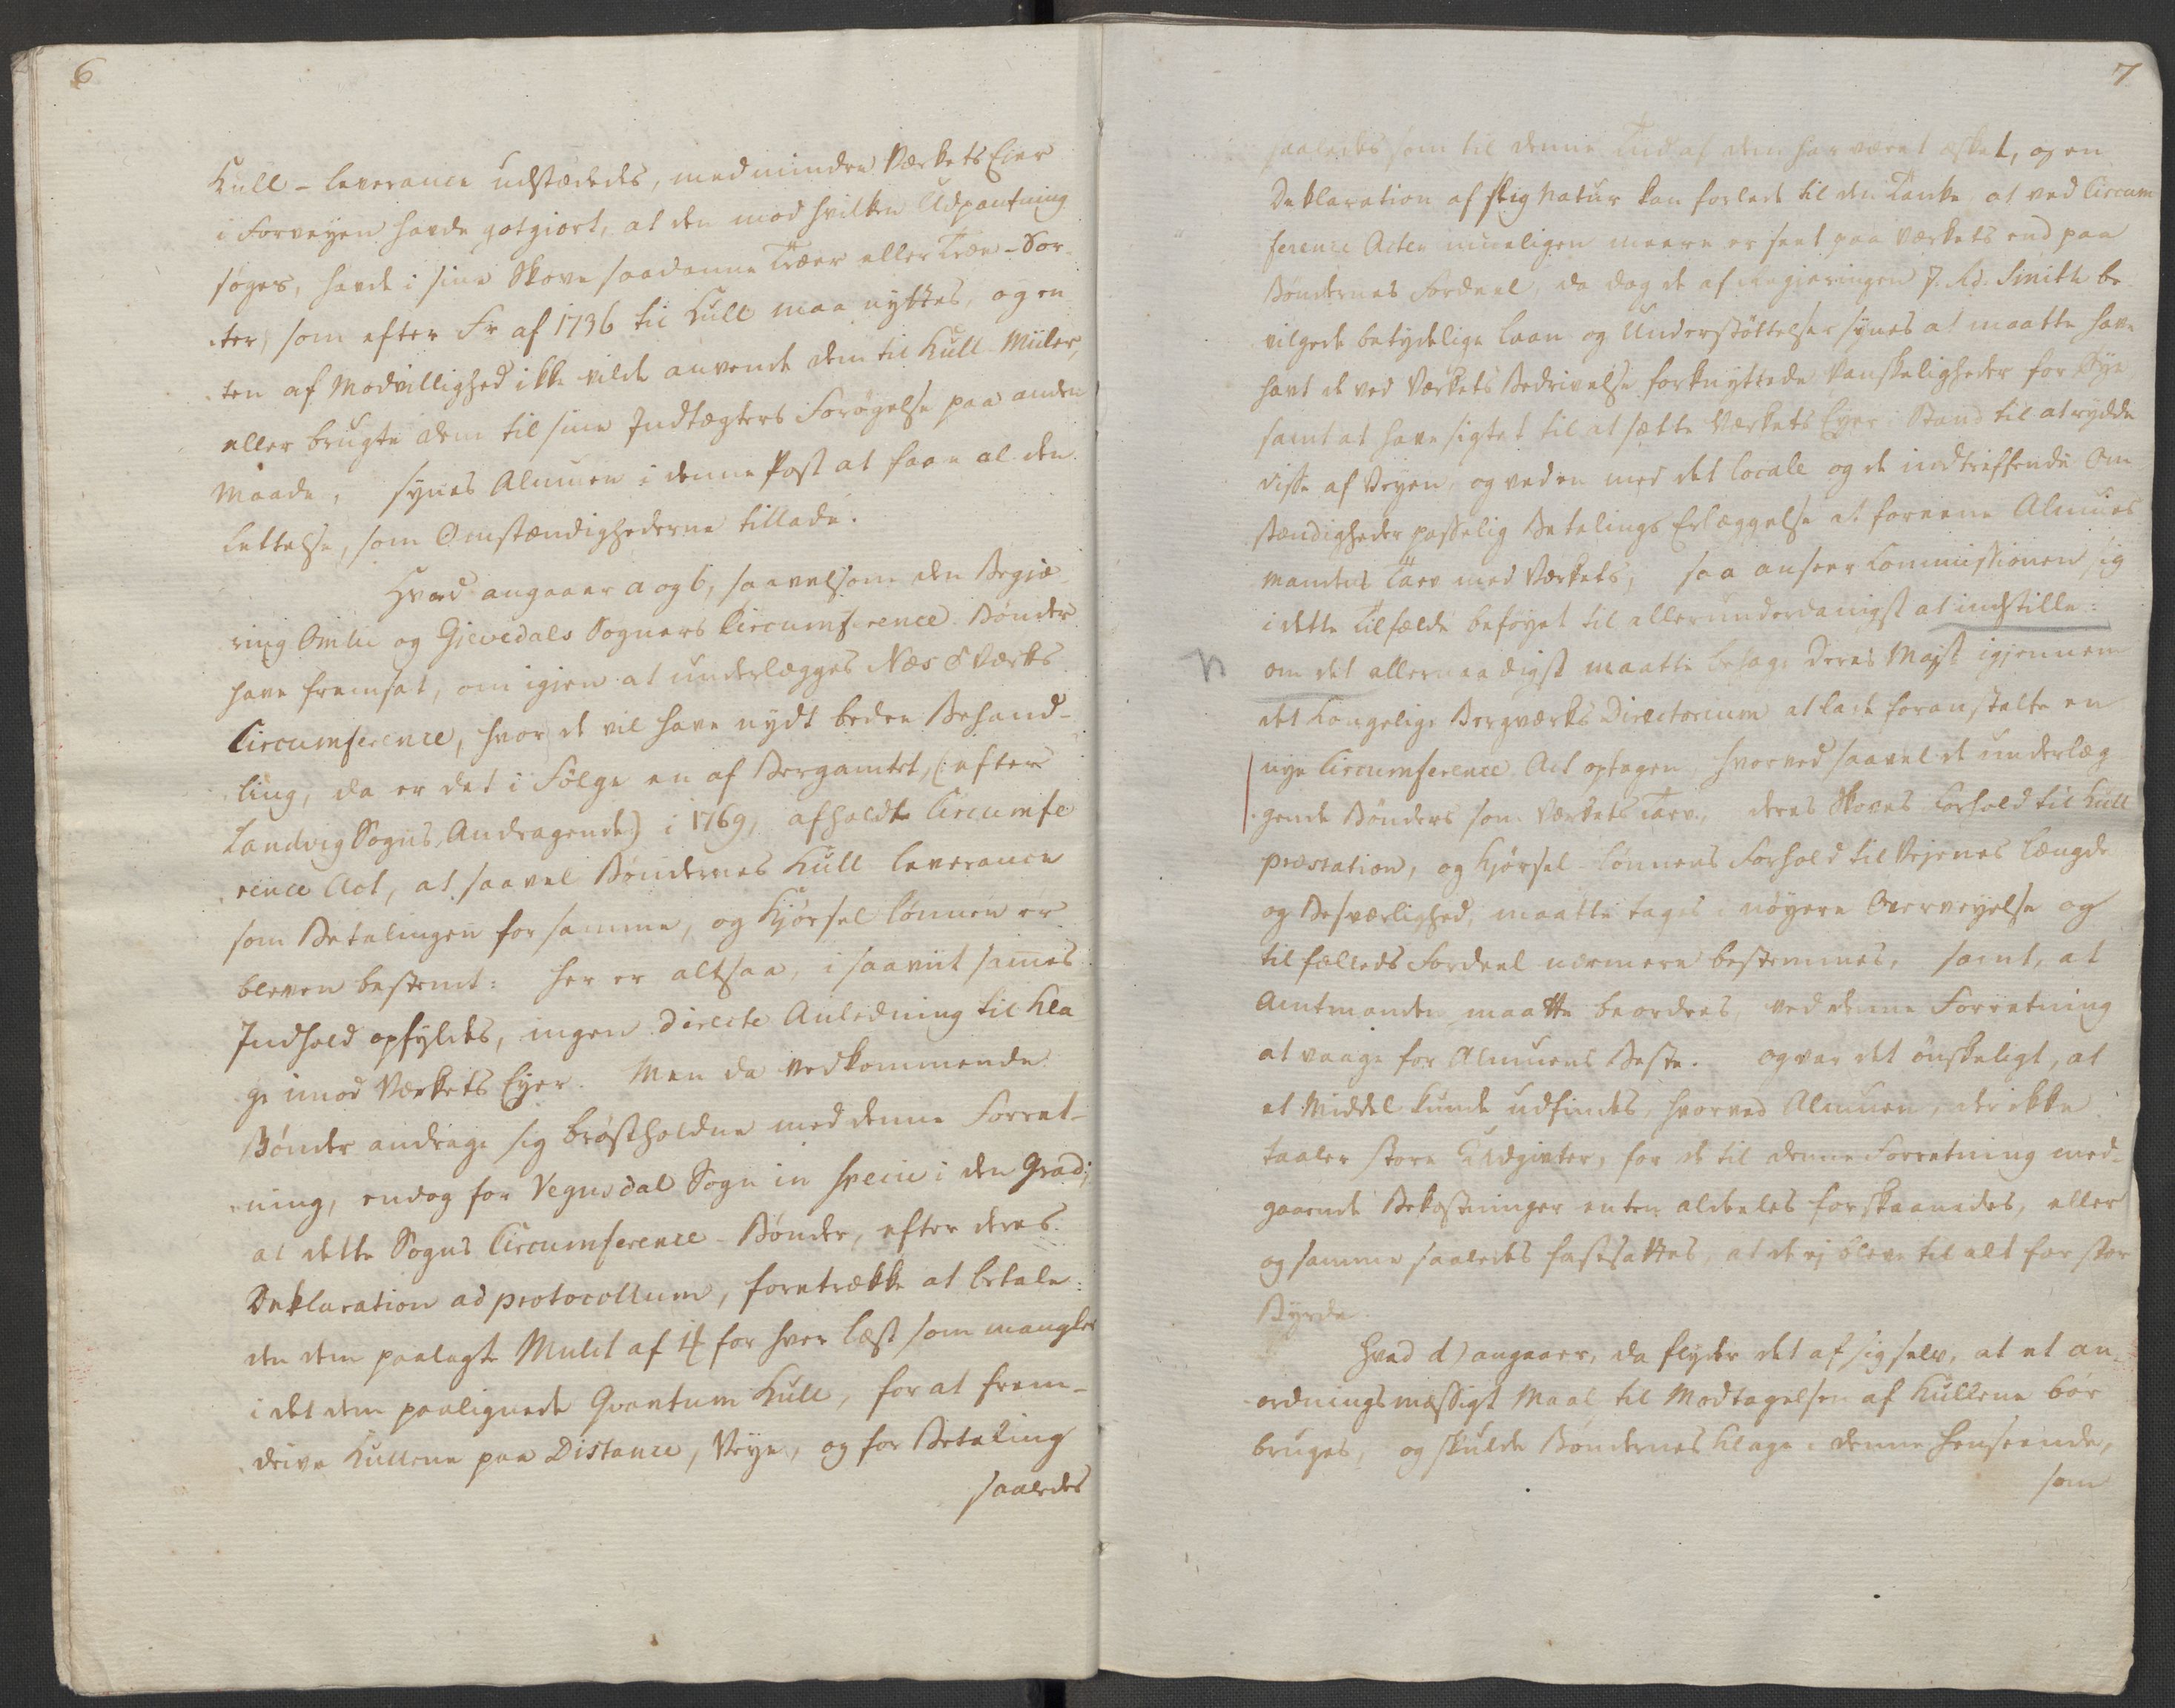 6
Kull-leverance udstædedes, med mindre Værkets Eier
i Forveyen havde gotgiort, at den mod hvilken Udpantning
søges, havde i sine Skove saadanne Træer eller Træe-Sor-
ter, som efter Fr af 1736 til Kull maa nyttes, og en
ten af Modvillighed ikke vilde anvende dem til Kull-Miiler,
eller brugte dem til sine Indtægters Forøgelse paa anden
Maade, synes Almuen i denne Post at faae al den
Lettelse, som Omstændighederne tillade.
Hvad angaaer a og b, saavelsom den Begjæ-
ring Omlie og Gievedals Sogners Circumference-Bønder
have fremsat, om igien at underlægges Næs Værks
Circumference, hvor de vil have nydt bedre Behand-
ling, da er det i Følge en af Bergamtet, (efter
Landvig Sogns Andragende) i 1769, afholdt Circumfe
rence Act, at saavel Bøndernes Kull leverance
som Betalingen for samme, og Kjørsel lønnen er
bleven bestemt: her er altsaa, i saavit sammes
Indhold opfyldes, ingen directe Anledning til Kla
ge imod Værkets Eyer. Men da vedkommende
Bønder andrage sig brøstholdne med denne Forret-
ning, endog for Vegusdal Sogn in specie i den Grad,
at dette Sogns Circumference-Bønder, efter deres
Deklaration ad protocollum, foretrække at betale
den dem paalagte Mulct af 4 for hver Læst som mangler
i det dem paalignede Qvantum Kull, for at frem-
drive Kullene paa Distance, Veye, og for Betaling
saaledes
7
saaledes som til denne Tid af dem har været æsket, og en
Deklaration af slig Natur kan forlede til den Tanke at ved Circum
ference Acten mueligen meere er seet paa Værkets end paa
Bøndernes Fordeel, da dog de af Regieringen J. Ad. Smith be
vilgede betydelige Laan og Understøttelser synes at maatte have
havt de ved Værkets Bedrivelse forknyttede Vanskeligheder for Øye
samt at have sigtet til at sætte Værkets Eyer i Stand til at rydde
disse af Veyen, og ved en med det locale og de indtreffende Om
stændigheder passelig Betalings Erlæggelse at foreene Almues
mandens Tarv med Værkets; saa anseer Commissionen sig
i dette Tilfælde beføyet til allerunderdanigst at indstille:
om det allernaadigst maatte behage Deres Majst igjennem
det Kongelige Bergværks Directorium at lade foranstalte en
nye Circumference Act optagen, hvorved saavel de underlæg
gende Bønders som Værkets Tarv, deres Skoves Forhold til Kull
præstation, og Kjørsel-lønnens Forhold til Vejenes længde
og Besværlighed, maatte tages i nøyere Overveyelse og
til fælleds Fordeel nærmere bestemmes, samt, at
Amtmanden maatte beordres, ved denne Forretning
at vaage for Almuens Beste. og var det ønskeligt, at
et Middel kunde udfindes, hvorved Almuen, der ikke
taaler store Udgivter, for de til denne Forretning med-
gaaende Bekostninger enten aldeeles forskaanedes, eller
og samme saaledes fastsattes, at de ej bleve til alt for stor
Byrde.
Hvad d) angaaer, da flyder det af sig selv, at et an
ordningsmæssigt Maal til Modtagelsen af Kullene bør
bruges, og skulde Bøndernes Klage i denne henseende,
som